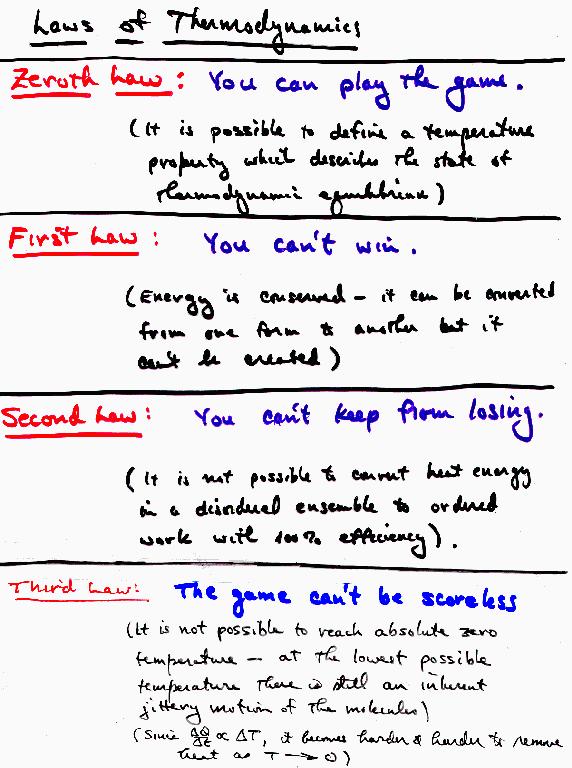 Laws of Thermodynamics
Zeroth Law: You can play the game.
(It is possible to define a temperature
property which describes the state of
thermodynamic equilibrium)
First Law: You can't win.
(Energy is conserved – it can be converted
from one form to another but it
can't be created)
Second Law: You can't keep from losing.
(It is not possible to convert heat energy
in a disordered ensemble to ordered
work with 100% efficiency).
Third Law: The game can't be scoreless
(It is not possible to reach absolute zero
temperature – at the lowest possible
temperature there is still an inherent
jittery motion of the molecules)
(Since ΔQ/Δt ∝ ΔT, it becomes harder & harder to remove
heat as T → 0)